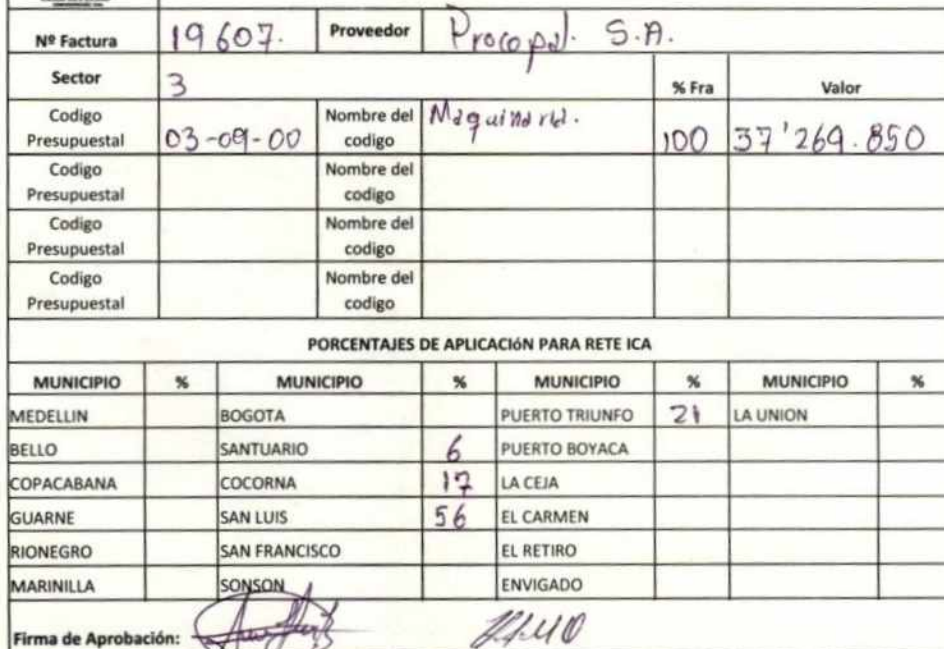 Nº Factura 19607. Proveedor Procopal. S.A.
Sector 3 % Fra Valor
Codigo Presupuestal 03-09-00 Nombre del codigo Maquinaria. 100 37'269.850
Codigo Presupuestal Nombre del codigo
Codigo Presupuestal Nombre del codigo
Codigo Presupuestal Nombre del codigo
PORCENTAJES DE APLICACIÓN PARA RETE ICA
MUNICIPIO % MUNICIPIO % MUNICIPIO % MUNICIPIO %
MEDELLIN BOGOTA PUERTO TRIUNFO 21 LA UNION
BELLO SANTUARIO 6 PUERTO BOYACA
COPACABANA COCORNA 17 LA CEJA
GUARNE SAN LUIS 56 EL CARMEN
RIONEGRO SAN FRANCISCO EL RETIRO
MARINILLA SONSON ENVIGADO
Firma de Aprobación: